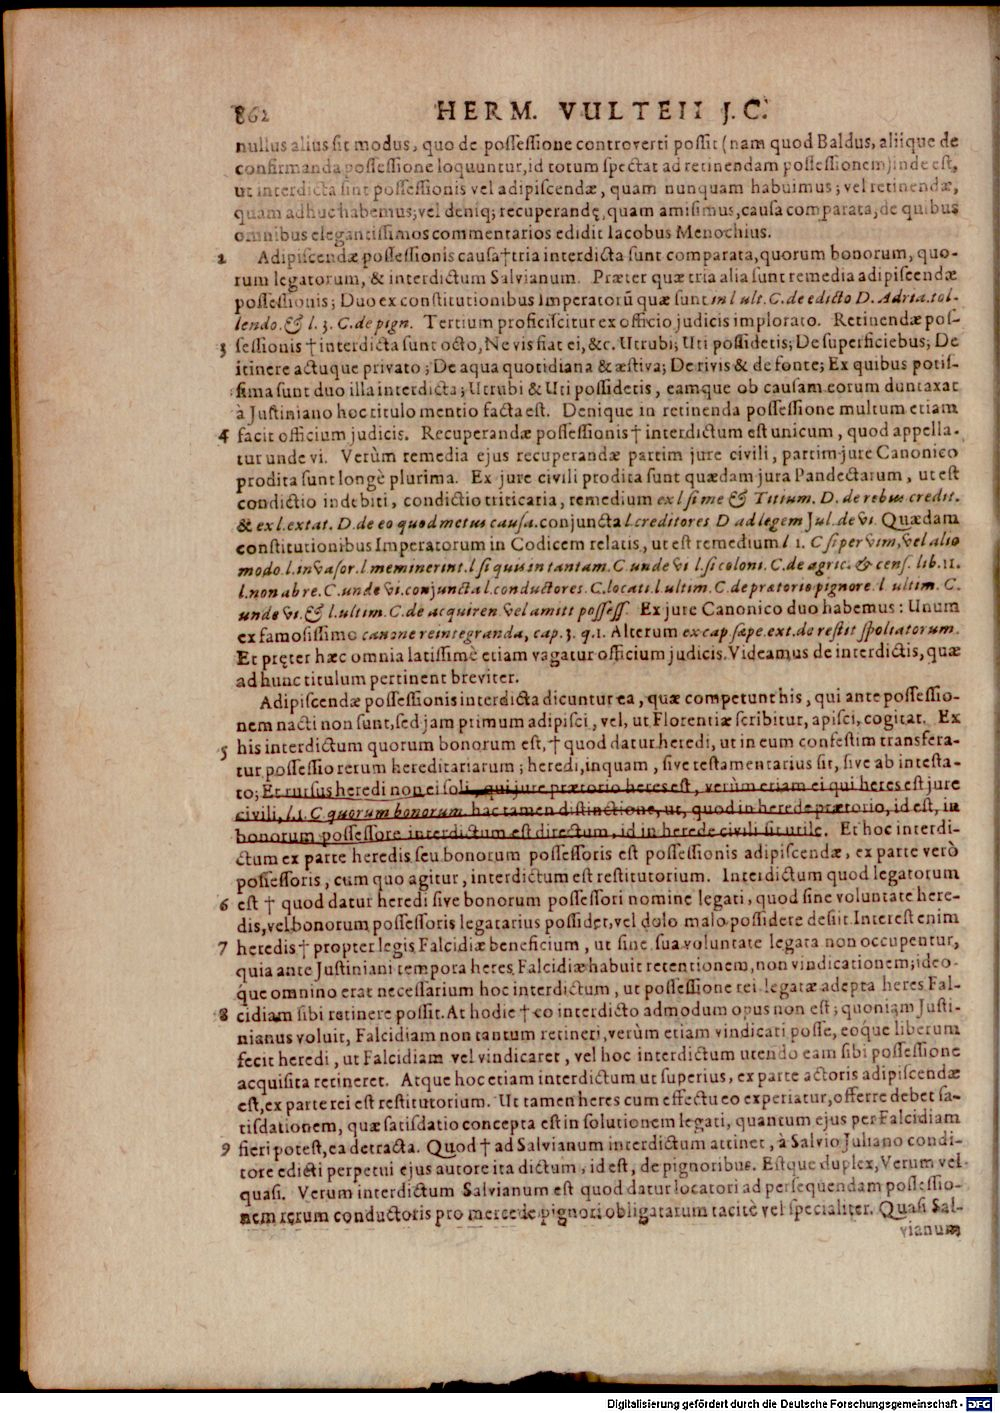 862 HERM. VULTEII J. C.
nullus alius sit modus, quo de possessione controverti possit (nam quod Baldus, aliique de
confirmanda possessione loquuntur, id totum spectat ad retinendam possessionem) inde est,
ut interdicta sint possessionis vel adipiscendæ, quam nunquam habuimus; vel retinendæ,
quam adhuc habemus; vel deniq; recuperandę, quam amisimus, causa comparata, de quibus
omnibus elegantissimos commentarios edidit Iacobus Menochius.
2 Adipiscendæ possessionis causa † tria interdicta sunt comparata, quorum bonorum, quo-
rum legatorum, & interdictum Salvianum. Præter quæ tria alia sunt remedia adipiscendæ
possessionis; Duo ex constitutionibus Imperatorū quæ sunt in l ult. C. de edicto D. Adria. tol-
lendo. & l. 3. C. de pign. Tertium proficiscitur ex officio judicis implorato. Retinendæ pos-
3 sessionis † interdicta sunt octo, Ne vis fiat ei, &c. Utrubi; Uti possidetis; De superficiebus; De
itinere actuque privato; De aqua quotidiana & æstiva; De rivis & de fonte; Ex quibus potis-
sima sunt duo illa interdicta; Utrubi & Uti possidetis, eamque ob causam eorum duntaxat
à Justiniano hoc titulo mentio facta est. Denique in retinenda possessione multum etiam
4 facit officium judicis. Recuperandæ possessionis † interdictum est unicum, quod appella-
tur unde vi. Verùm remedia ejus recuperandæ partim jure civili, partim jure Canonico
prodita sunt longè plurima. Ex jure civili prodita sunt quædam jura Pandectarum, ut est
condictio indebiti, condictio triticaria, remedium ex l si me & Titium. D. de rebus credit.
& ex l. extat. D. de eo quod metus causa. conjuncta l. creditores D ad legem Jul. de vi. Quædam
constitutionibus Imperatorum in Codicem relatis, ut est remedium l 1. C si per vim, vel alio
modo. l. invasor. l. meminerint. l si quis in tantam. C. unde vi l. si coloni. C. de agric. & cens. lib. 11.
l. non ab re. C. unde vi. conjuncta l. conductores. C. locati. l ultim. C. de pretorio pignore. l ultim. C.
unde vi. & l. ultim. C. de acquiren. vel amitt possess. Ex jure Canonico duo habemus: Unum
ex famosissimo canone reintegranda, cap. 3. q. 1. Alterum ex cap. sæpe. ext. de restit spoliatorum.
Et pręter hæc omnia latissimè etiam vagatur officium judicis. Videamus de interdictis, quæ
ad hunc titulum pertinent breviter.
Adipiscendæ possessionis interdicta dicuntur ea, quæ competunt his, qui ante possessio-
nem nacti non sunt, sed jam primum adipisci, vel, ut Florentiæ scribitur, apisci, cogitat. Ex
5 his interdictum quorum bonorum est, † quod datur heredi, ut in eum confestim transfera-
tur possessio rerum hereditariarum; heredi, inquam, sive testamentarius sit, sive ab intesta-
to; Et rursus heredi non ei soli, qui jure prætorio heres est, verùm etiam ei qui heres est jure
civili, l. 1. C quorum bonorum. hac tamen distinctione, ut, quod in herede prætorio, id est, in
bonorum possessore interdictum est directum, id in herede civili sit utile. Et hoc interdi-
ctum ex parte heredis seu bonorum possessoris est possessionis adipiscendæ, ex parte verò
possessoris, cum quo agitur, interdictum est restitutorium. Interdictum quod legatorum
6 est † quod datur heredi sive bonorum possessori nomine legati, quod sine voluntate here-
dis, vel bonorum possessoris legatarius possidet, vel dolo malo possidere desiit. Interest enim
7 heredis † propter legis Falcidiæ beneficium, ut sine sua voluntate legata non occupentur,
quia ante Justiniani tempora heres Falcidiæ habuit retentionem, non vindicationem; ideo-
que omnino erat necessarium hoc interdictum, ut possessione rei legatæ adepta heres Fal-
8 cidiam sibi retinere possit. At hodie † eo interdicto admodum opus non est; quoniam Justi-
nianus voluit, Falcidiam non tantum retineri, verùm etiam vindicari posse, eoque liberum
fecit heredi, ut Falcidiam vel vindicaret, vel hoc interdictum utendo eam sibi possessione
acquisita retineret. Atque hoc etiam interdictum ut superius, ex parte actoris adipiscendæ
est, ex parte rei est restitutorium. Ut tamen heres cum effectu eo experiatur, offerre debet sa-
tisdationem, quæ satisdatio concepta est in solutionem legati, quantum ejus per Falcidiam
9 fieri potest, ea detracta. Quod † ad Salvianum interdictum attinet, à Salvio Juliano condi-
tore edicti perpetui ejus autore ita dictum, id est, de pignoribus. Estque duplex, Verum vel
quasi. Verum interdictum Salvianum est quod datur locatori ad persequendam possessio-
nem rerum conductoris pro mercede pignori obligatarum tacitè vel specialiter. Quasi Sal-
vianum
Digitalisierung gefördert durch die Deutsche Forschungsgemeinschaft - DFG